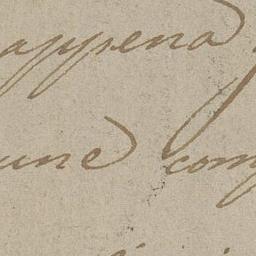 appena
une com